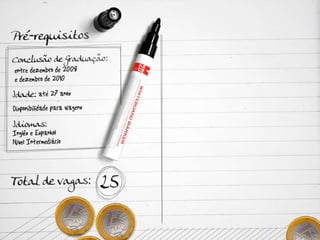 Pré-requisitos
Conclusão de Graduação:
entre dezembro de 2008
e dezembro de 2010
Idade: até 27 anos
Disponibilidade para viagens
Idiomas:
Inglês e Espanhol
Nível Intermediário
Total de vagas: 25
WHITEBOARD MARKER